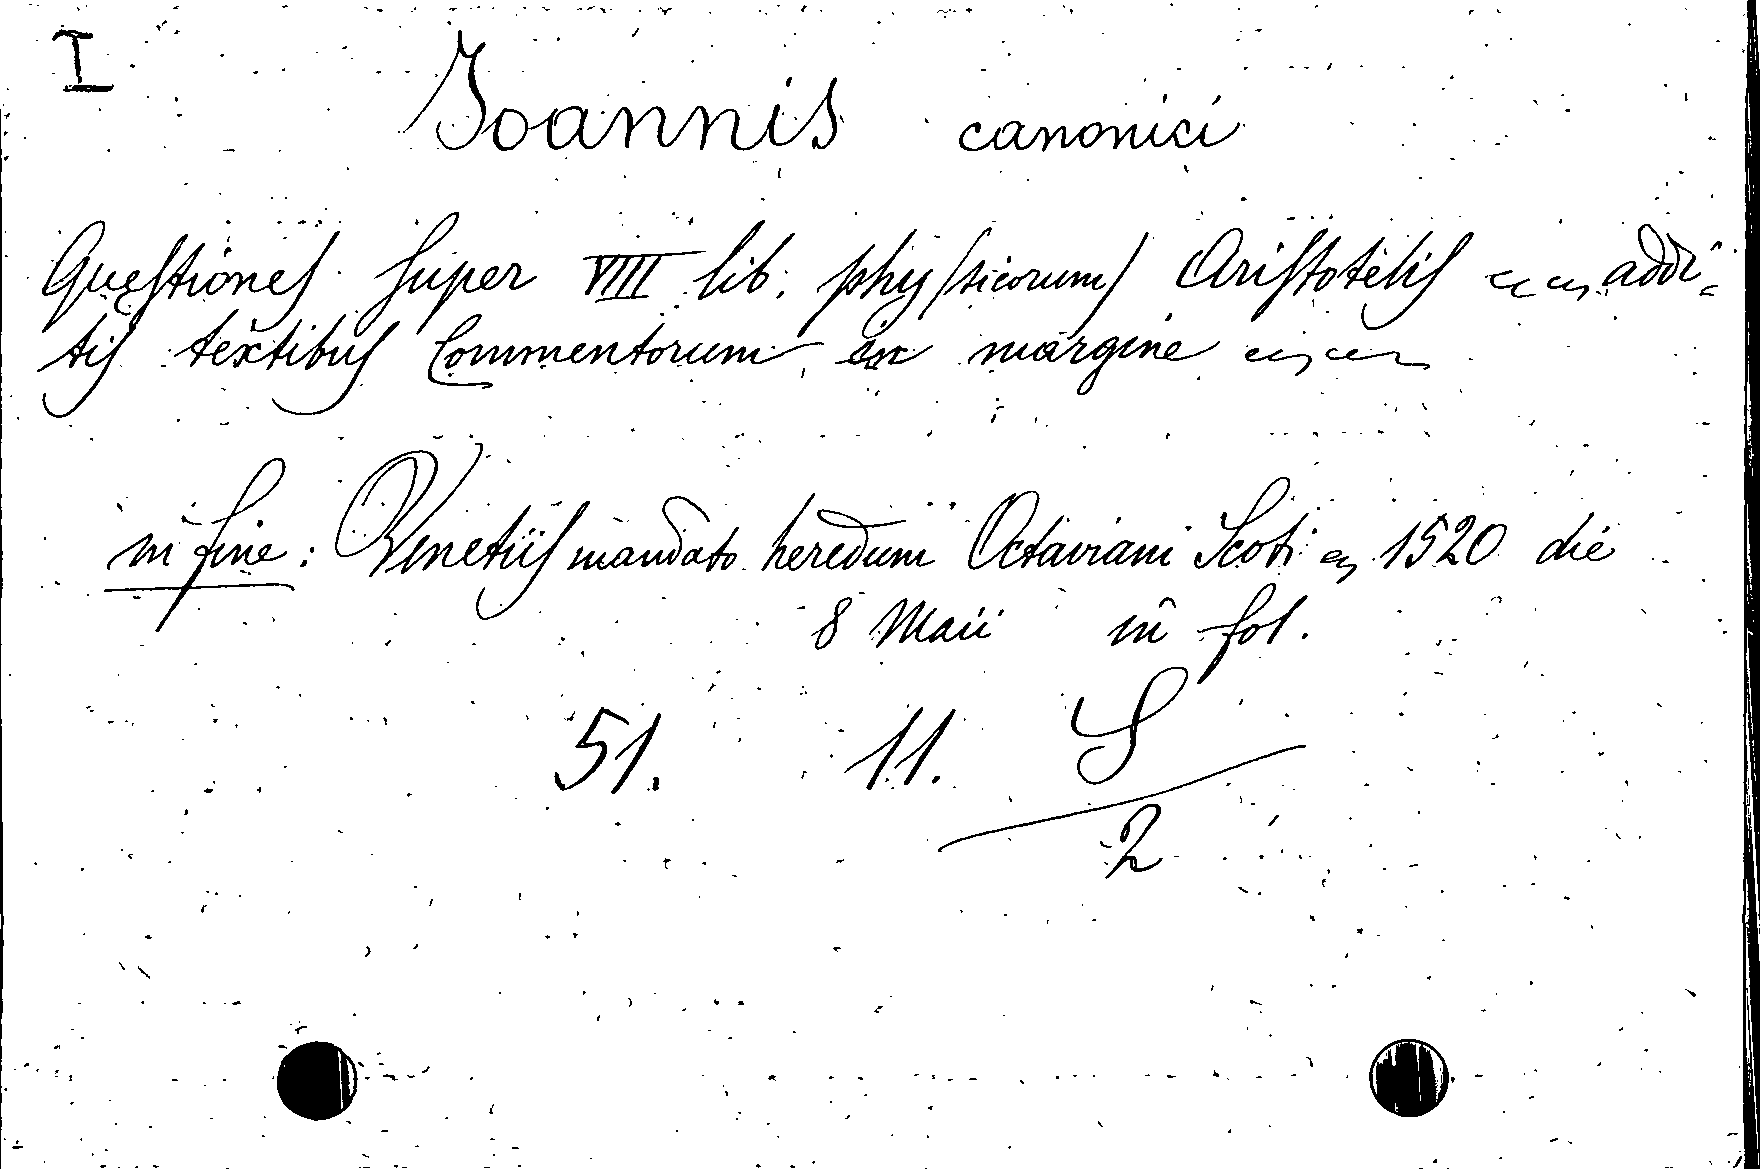 I
Joannis canonici
Quęstiones super VIIII lib. phy(sicorum) Aristotelis ~ addi-
tis textibus Commentorum in margine ~
in fine: Venetiis mandato heredum Octaviani Scoti ~ 1520 die
8 Maii in fol.
51. 11. S
2